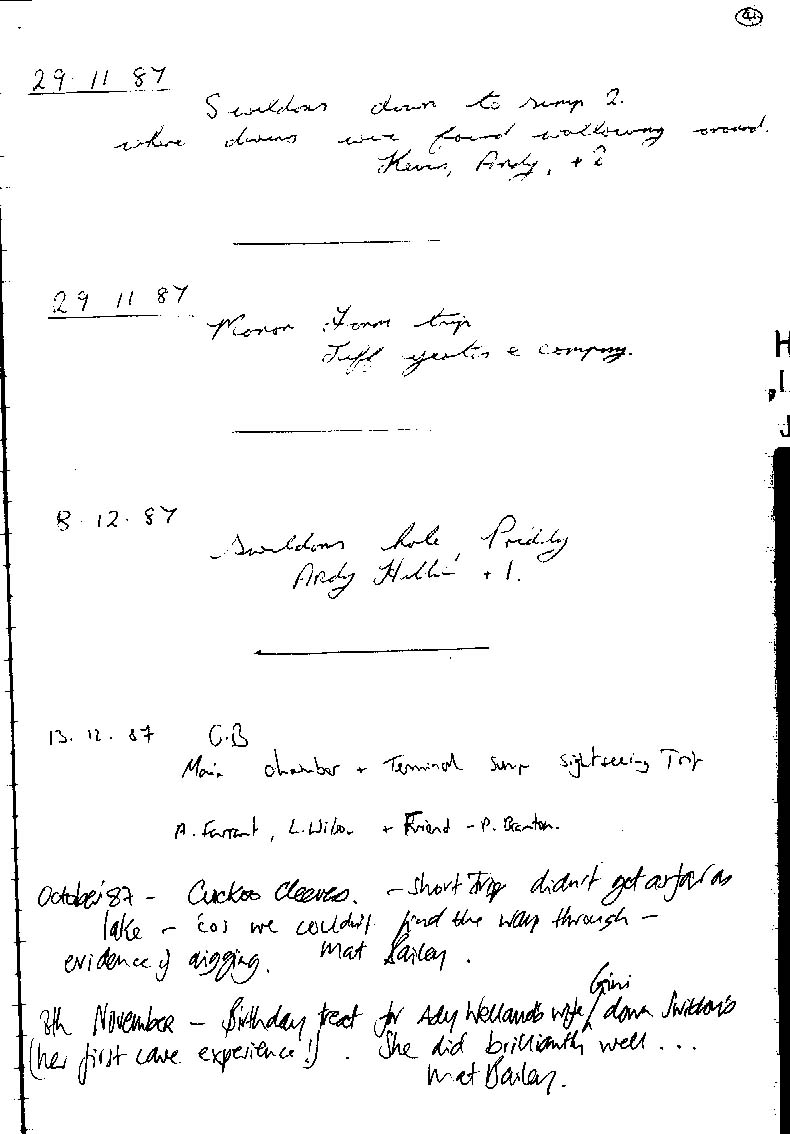 4
29. 11 87
Swildons down to sump 2.
where divers were found wallowing around.
Kevin, Andy, + 2
29 11 87
Manor Farm trip
Tuff yeates & company.
8. 12. 87
Swildons hole, Priddy
Andy + 1.
13. 12. 87 G.B
Main chamber + Terminal sump sightseeing Trip
A. Farrant, L. + Friend - P. Branton.
October 87 - Cuckoo Cleeves. - Short Trip didn't get as far as
lake - 'cos we couldn't find the way through -
evidence of digging. Mat Bailey.
Gini
8th November - Birthday treat for Ady Welland's wife / down Swildon's
(her first cave experience!). She did brilliantly well...
Mat Bailey.
H
J